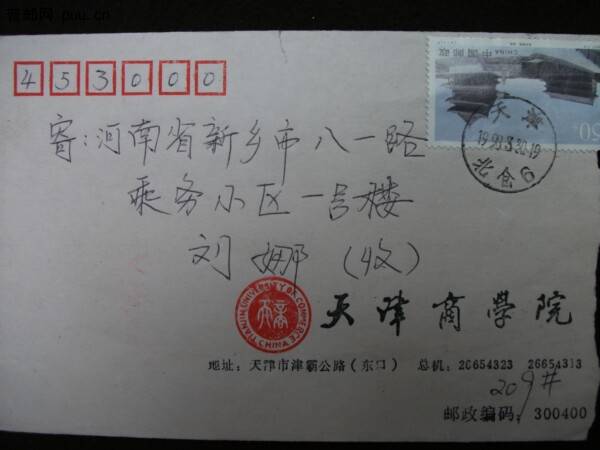 普邮网 puu.cn
453000
中国邮政
CHINA
50
天津
1999.3.30.19
北仓6
寄:河南省新乡市八一路
乘务小区一号楼
刘娜(收)
TIANJIN UNIVERSITY OF COMMERCE
CHINA
天津商学院
地址:天津市津霸公路(东口) 总机:26654323 26654313
209#
邮政编码:300400